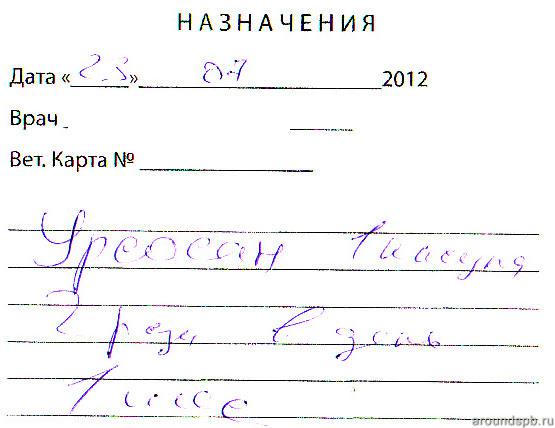 НАЗНАЧЕНИЯ
Дата «23» 07 2012
Врач
Вет. Карта №
Урсосан 1 капсула
2 раза в день
1 мес
aroundspb.ru